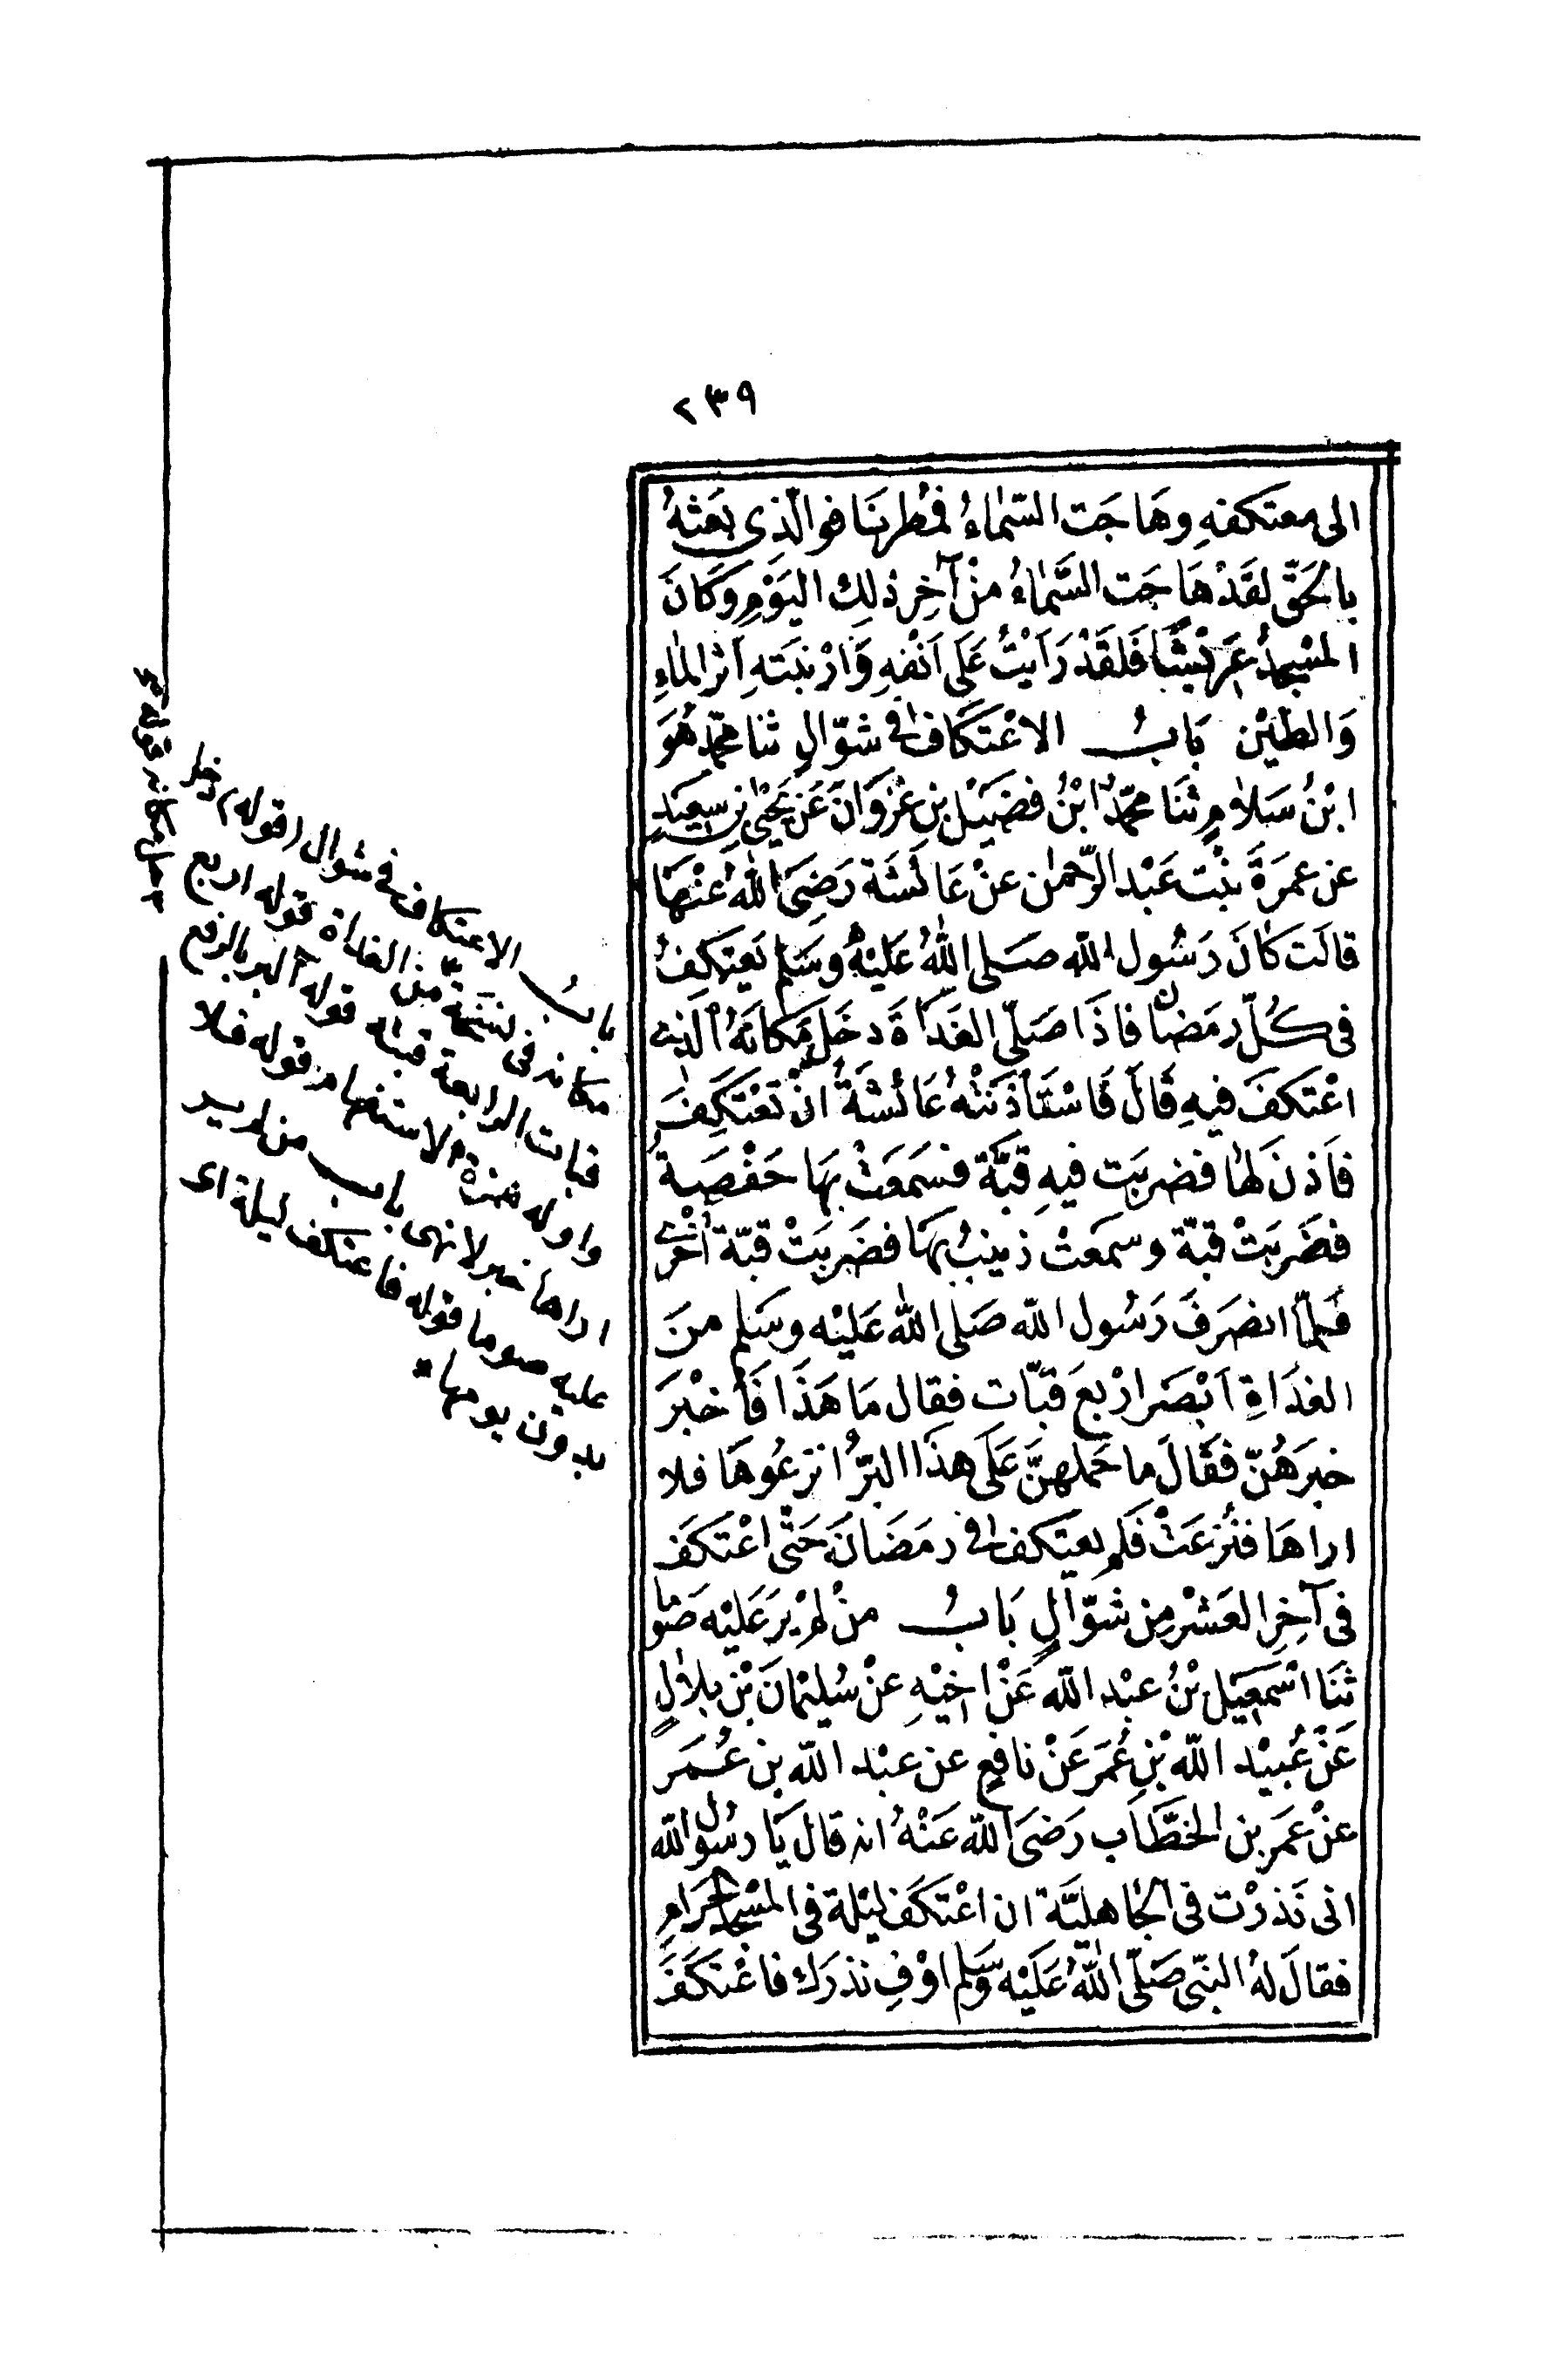 ٢٣٩
الى معتكفهِ وهَاجَت السّمَاءُ فمُطِرنَا فوالّذِى بَعَثهُ
بالحَقّ لقَدْ هَاجَت السَّمَاءُ منْ آخِر ذلِك اليَوْمِ وَكَانَ
المسْجِدُ عَرِيْشًا فَلقَدْ رَاَيْتُ عَلَى اَنْفهِ وَارْنبَتهِ اَثر المَاءِ
وَالطّيْن بَابُ الاعْتكَاف فى شوّالٍ ثنا محمّد هُوَ
ابْنُ سَلامٍ ثنَا محمّدُ ابْنُ فضَيْل بنِ غزْوَانَ عَنْ يَحْيَى بنِ سعِيدٍ
عن عمرَةَ بنْت عَبْد الرّحمٰن عنْ عَائشَة رَضِىَ اللّهُ عنْهَا
قالَت كَانَ رَسُول اللّه صَلى اللّهُ عَليْهِ وسَلم يَعتكِفُ
فى كُلّ رمَضان فاذَا صَلّى الغَدَاةَ دخَل مَكانَهُ الّذِى
اعْتكَفَ فيهِ قَالَ فَاسْتَأذَنَتْهُ عَائشَةُ انْ تَعْتَكِفَ
فاَذنَ لهَا فضربَت فيهِ قبَّة فسَمعَتْ بهَا حَفْصَةُ
فضَرَبَتْ قبّة وسمعَتْ زينبُ بهَا فضَربَتْ قبّة اُخْرٰى
فَلمّا انصَرَفَ رَسُول اللّه صَلى اللّهُ عَليْه وسَلم منَ
الغدَاةِ اَبْصَر ارْبعَ قبّات فقال مَا هَذَا فَاُخْبرَ
خبرَهُنّ فقَالَ ما حَملهنَّ عَلَى هذَا البرُّ انزعُوهَا فلا
اراهَا فنُزعَتْ فَلم يعتَكف فى رمَضَانَ حَتّى اعْتَكَفَ
فى آخِرِ العَشْر مِن شوّالٍ بَابُ منْ لمْ يرَ عَليْه صَوْمًا
ثنَا اسْمَعِيْل بْنُ عبْد اللّه عَنْ اخِيْهِ عنْ سُليْمانَ بْن بلالٍ
عَنْ عُبيْد اللّه بْنِ عُمَرَ عَنْ نافعٍ عن عبْد اللّه بن عُمَر
عنْ عمَر بن الخطَّاب رَضىَ اللّه عَنْهُ انه قال يَا رسُول اللّه
انى نَذرْت فى الجَاهليَّة ان اعْتكَفَ ليْلة فى المسْجد الحرَامِ
فقالَ لهُ النبّى صَلّى اللّهُ عَليْه وسَّلم اوْفِ نذرَك فاعْتكَفَ
بابُ الاعتكاف فى شوال (قوله) دخل
مكانه فى نسخة من الغداة قوله اربع
قباب الرابعة قبته قوله آلبر بالرفع
واوله همزة الاستفهام قوله فلا
اراها خبر لا نهى باب من لم ير
عليه صوما قوله فاعتكف ليلة اى
بدون يومها